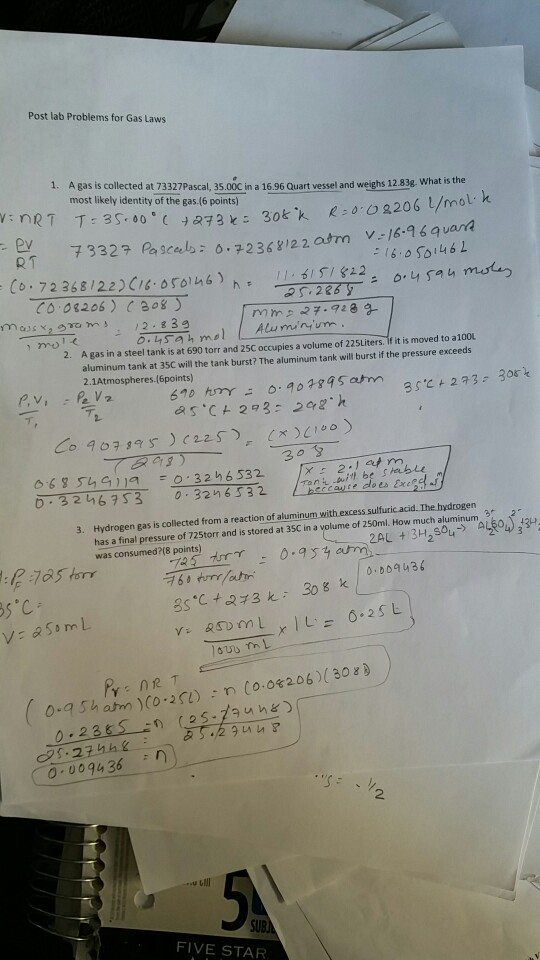 Post lab Problems for Gas Laws
1. A gas is collected at 73327Pascal, 35.00C in a 16.96 Quart vessel and weighs 12.83g. What is the
most likely identity of the gas.(6 points)
V = nRT T = 35.00°C +273k = 308°k R = 0.08206 L/mol.k
= PV
RT
73327 Pascals = 0.72368122 atm V = 16.96 quart
= 16.050146L
= (0.72368122)(16.050146)
(0.08206) (308)
n = 11.6151822
25.2868
= 0.4594 moles
mass, grams
mole
= 12.83g
0.4594 mol
mm = 27.928 g
Aluminium.
2. A gas in a steel tank is at 690 torr and 25C occupies a volume of 225Liters. If it is moved to a100L
aluminum tank at 35C will the tank burst? The aluminum tank will burst if the pressure exceeds
2.1Atmospheres.(6points)
P₁V₁ = P₂V₂
T₁ T₂
690 torr = 0.907895 atm 35°C + 273 = 308k
25°C + 273 = 298°k
(0.907895)(225) = (x)(100)
(298) 308
0.68549119 = 0.3246532
0.3246753 0.3246532
x = 2.1 atm
Tank will be stable
because does Exced 2.1 atm
3. Hydrogen gas is collected from a reaction of aluminum with excess sulfuric acid. The hydrogen
has a final pressure of 725torr and is stored at 35C in a volume of 250ml. How much aluminum
was consumed?(8 points)
2AL + 3H₂SO₄ → AL₂(SO₄)₃ + 3H₂
725 torr
760 torr/atm
= 0.954 atm
0.009436
P = 725 torr
35°C =
V = 250mL
35°C + 273 k = 308 k
V = 250mL x 1L = 0.25L
1000 mL
PV = nRT
(0.954 atm)(0.25L) = n (0.08206)(308)
0.2385 = n (25.27448)
25.27448 25.27448
0.009436 = n
- 1/2
5
SUBJE
FIVE STAR